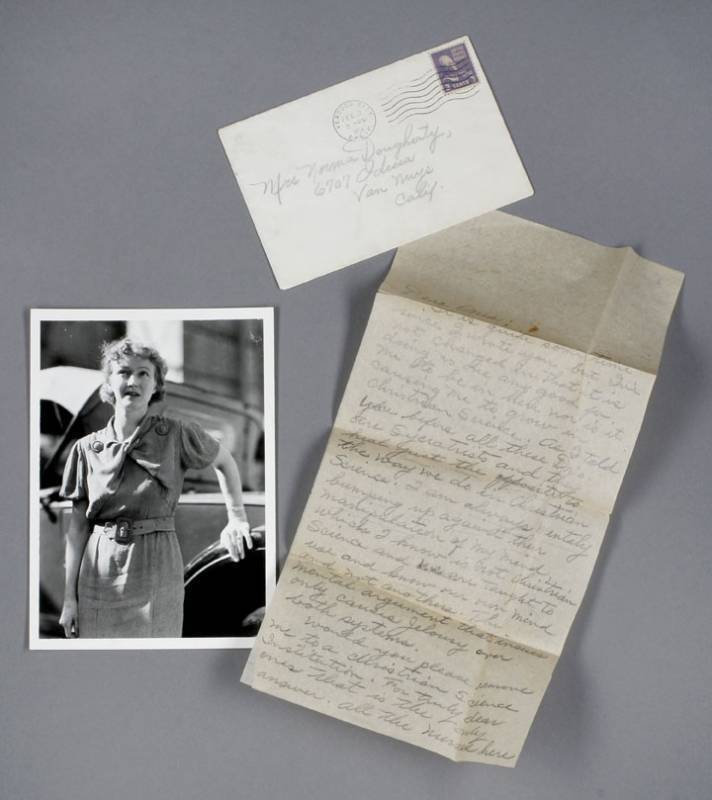 FEB
3 CENTS
Mrs Norma Dougherty,
6707 Odessa
Van Nuys
Calif.
Dear
is quite some time
since I wrote you but this
not changed for that it is
doing or die any good for
me to be in here nor is it
causing me to grow in
Christian Science. As I told
you before all these Drs
are Syciatrist and they
just the opposite to
the way we do in Christian
Science. I am always
bumping up against their
manipulation of my mind
which I know is not Christian
Science and we are taught to
use and know our own mind
and not anothers. This
mental argument that
only causes Jelousy over
both systems.
Would you please remove
me to a Christian Science
Institution. For truly dear
ones that is the only
answer. All the here